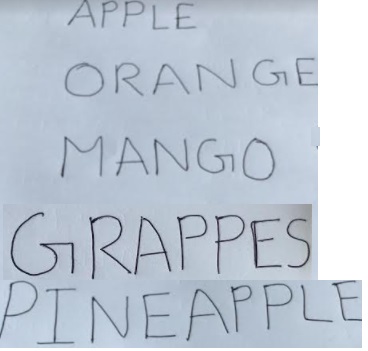 APPLE
ORANGE
MANGO
GRAPPES
PINEAPPLE